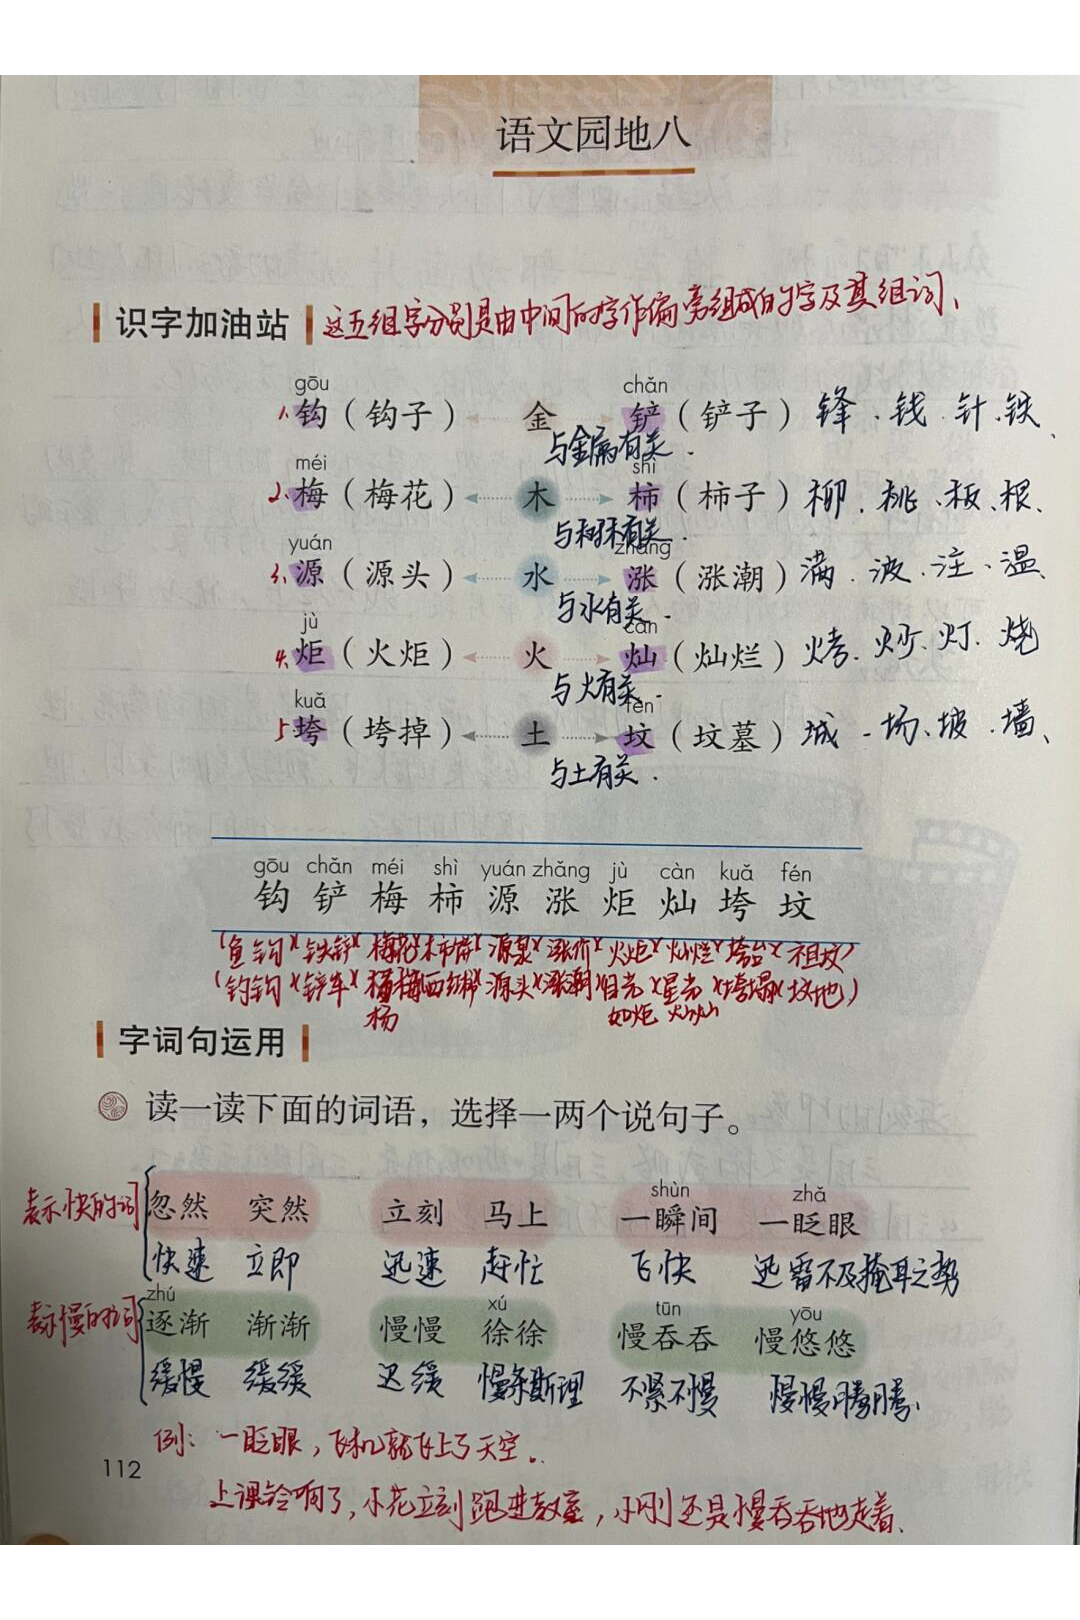 语文园地八
识字加油站 这五组字分别是由中间的字作偏旁组成的字及其组词、
gōu chǎn
1.钩（钩子） 金 铲（铲子） 锋、钱、针、铁、
与金属有关.
méi shì
2.梅（梅花） 木 柿（柿子） 柳.桃、板、根、
与树木有关.
yuán zhǎng
3.源（源头） 水 涨（涨潮） 满.波.注、温、
与水有关.
jù càn
4.炬（火炬） 火 灿（灿烂） 烤.炒、灯.烧
与火有关.
kuǎ fén
5垮（垮掉） 土 坟（坟墓） 城-场、坡.墙、
与土有关.
gōu chǎn méi shì yuán zhǎng jù càn kuǎ fén
钩 铲 梅 柿 源 涨 炬 灿 垮 坟
(鱼钩)(铁铲)(梅花)(柿饼)(源泉)(涨价)(火炬)(灿烂)(垮台)(祖坟)
(钓钩)(铲车)(杨梅)(西红柿)(源头)(涨潮)(目光如炬)(星光灿灿)(垮塌)(坟地)
字词句运用
读一读下面的词语，选择一两个说句子。
shùn zhǎ
表示快的词 忽然 突然 立刻 马上 一瞬间 一眨眼
快速 立即 迅速 赶忙 飞快 迅雷不及掩耳之势
zhú xú tūn yōu
表示慢的词 逐渐 渐渐 慢慢 徐徐 慢吞吞 慢悠悠
缓慢 缓缓 迟缓 慢条斯理 不紧不慢 慢慢腾腾.
例：一眨眼，飞机就飞上了天空.
112
上课铃响了，小花立刻跑进教室，小刚还是慢吞吞地走着.